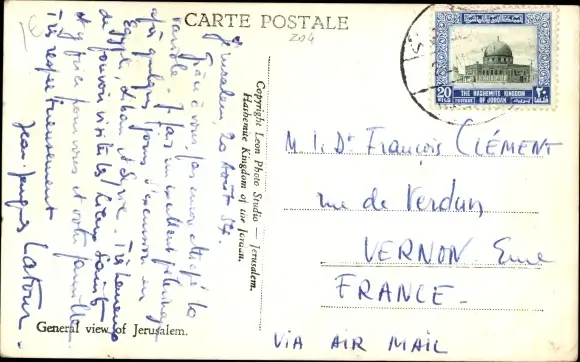 CARTE POSTALE
204
1€
Jérusalem 20 Août 54.
variole. J'ai un excellent
quelques jours d'excursion en
Égypte, Liban et Syrie. Très heureux
de pouvoir visiter les Lieux Saints
et y prier pour vous et votre famille.
Très respectueusement
Jean-Jacques Latour.
General view of Jerusalem.
Copyright Leon Photo Studio — Jerusalem.
Hashemite Kingdom of the Jordan.
20 FILS
THE HASHEMITE KINGDOM
POSTAGE OF JORDAN
٢٠
M. l. Dr François CLÉMENT
rue de Verdun
VERNON Eure
FRANCE-
VIA AIR MAIL